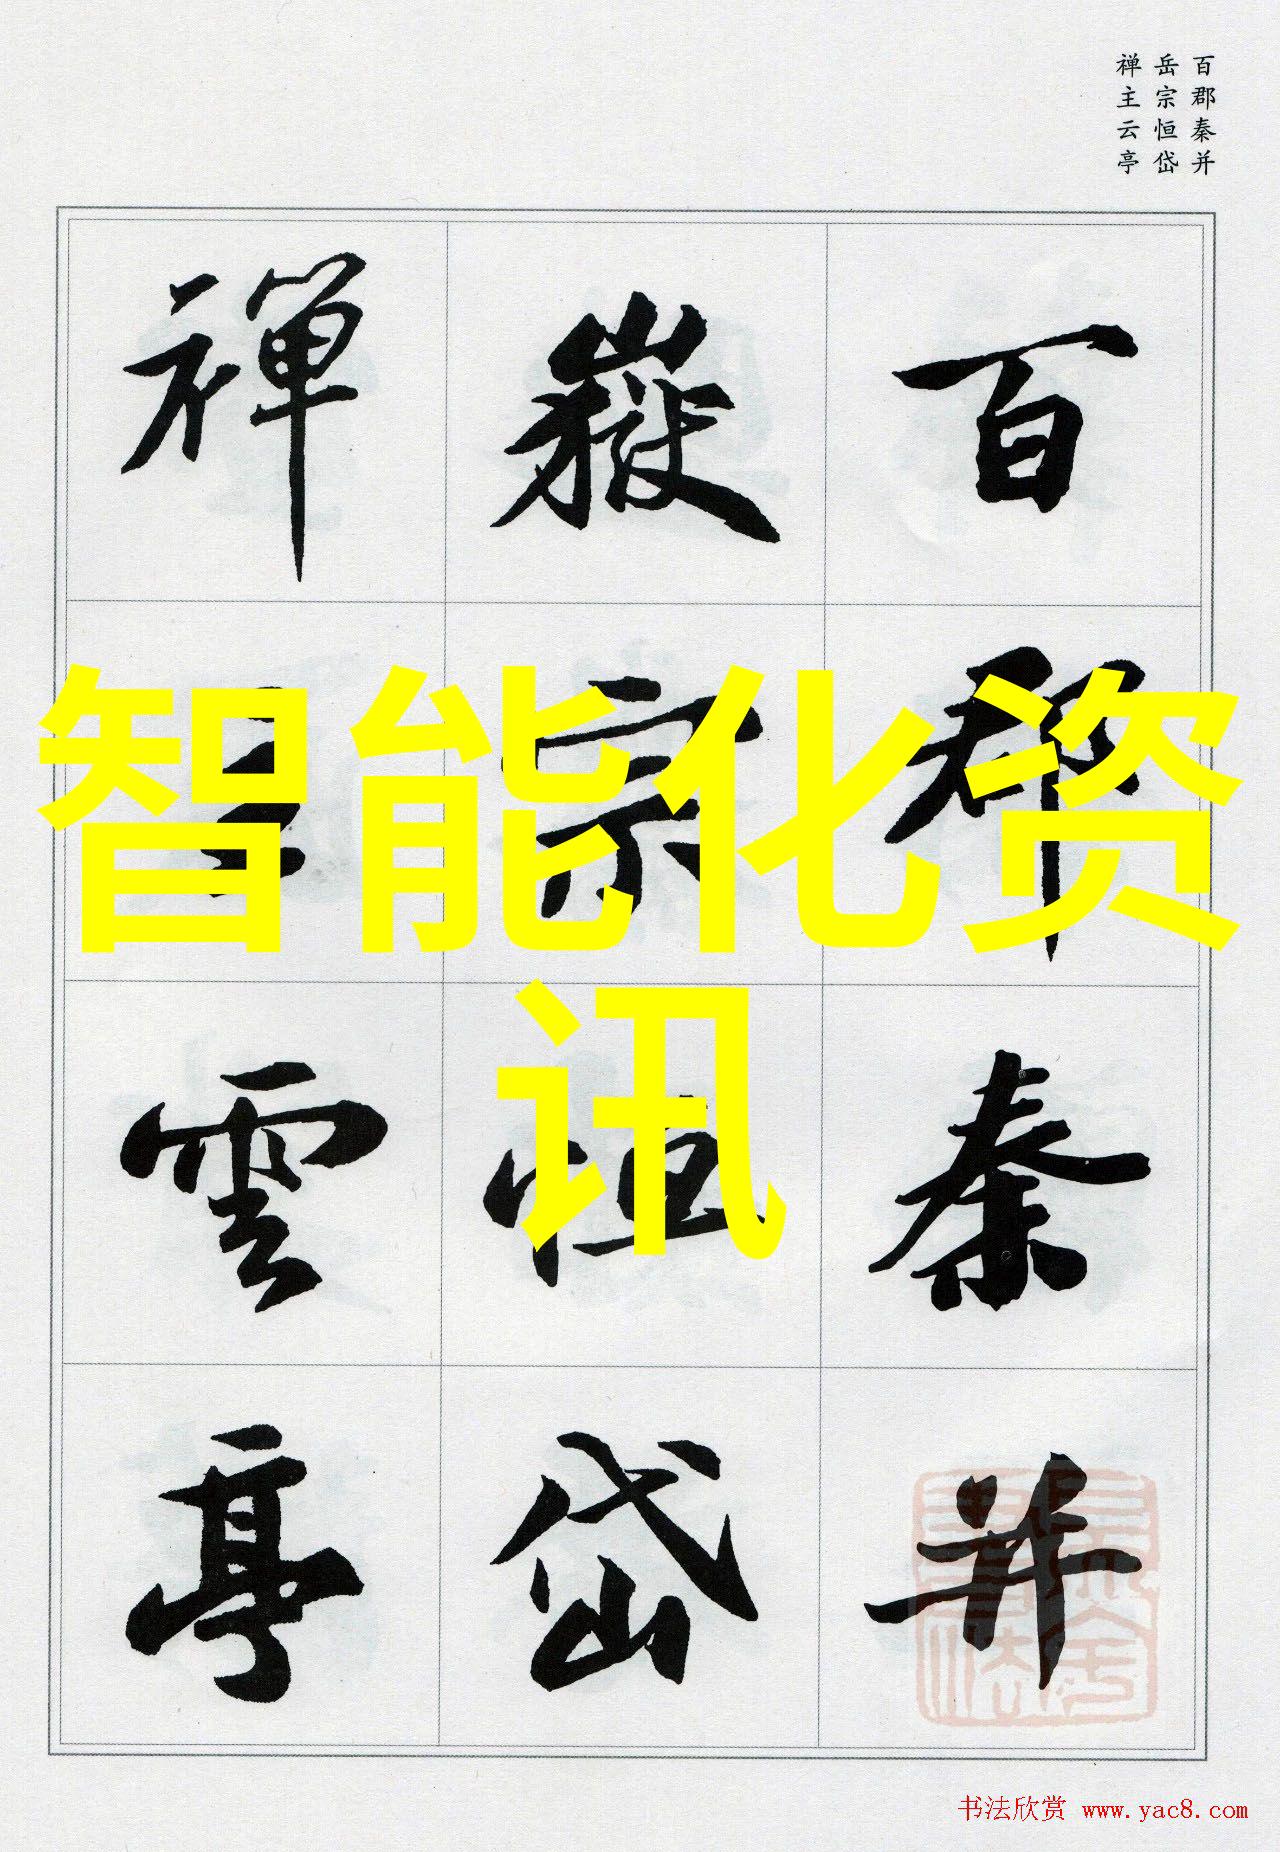 百郡秦并
岳宗恒岱
禅主云亭
百郡秦并
嶽宗恒岱
禅主雲亭
智能化资
讯
书法欣赏 www.yac8.com